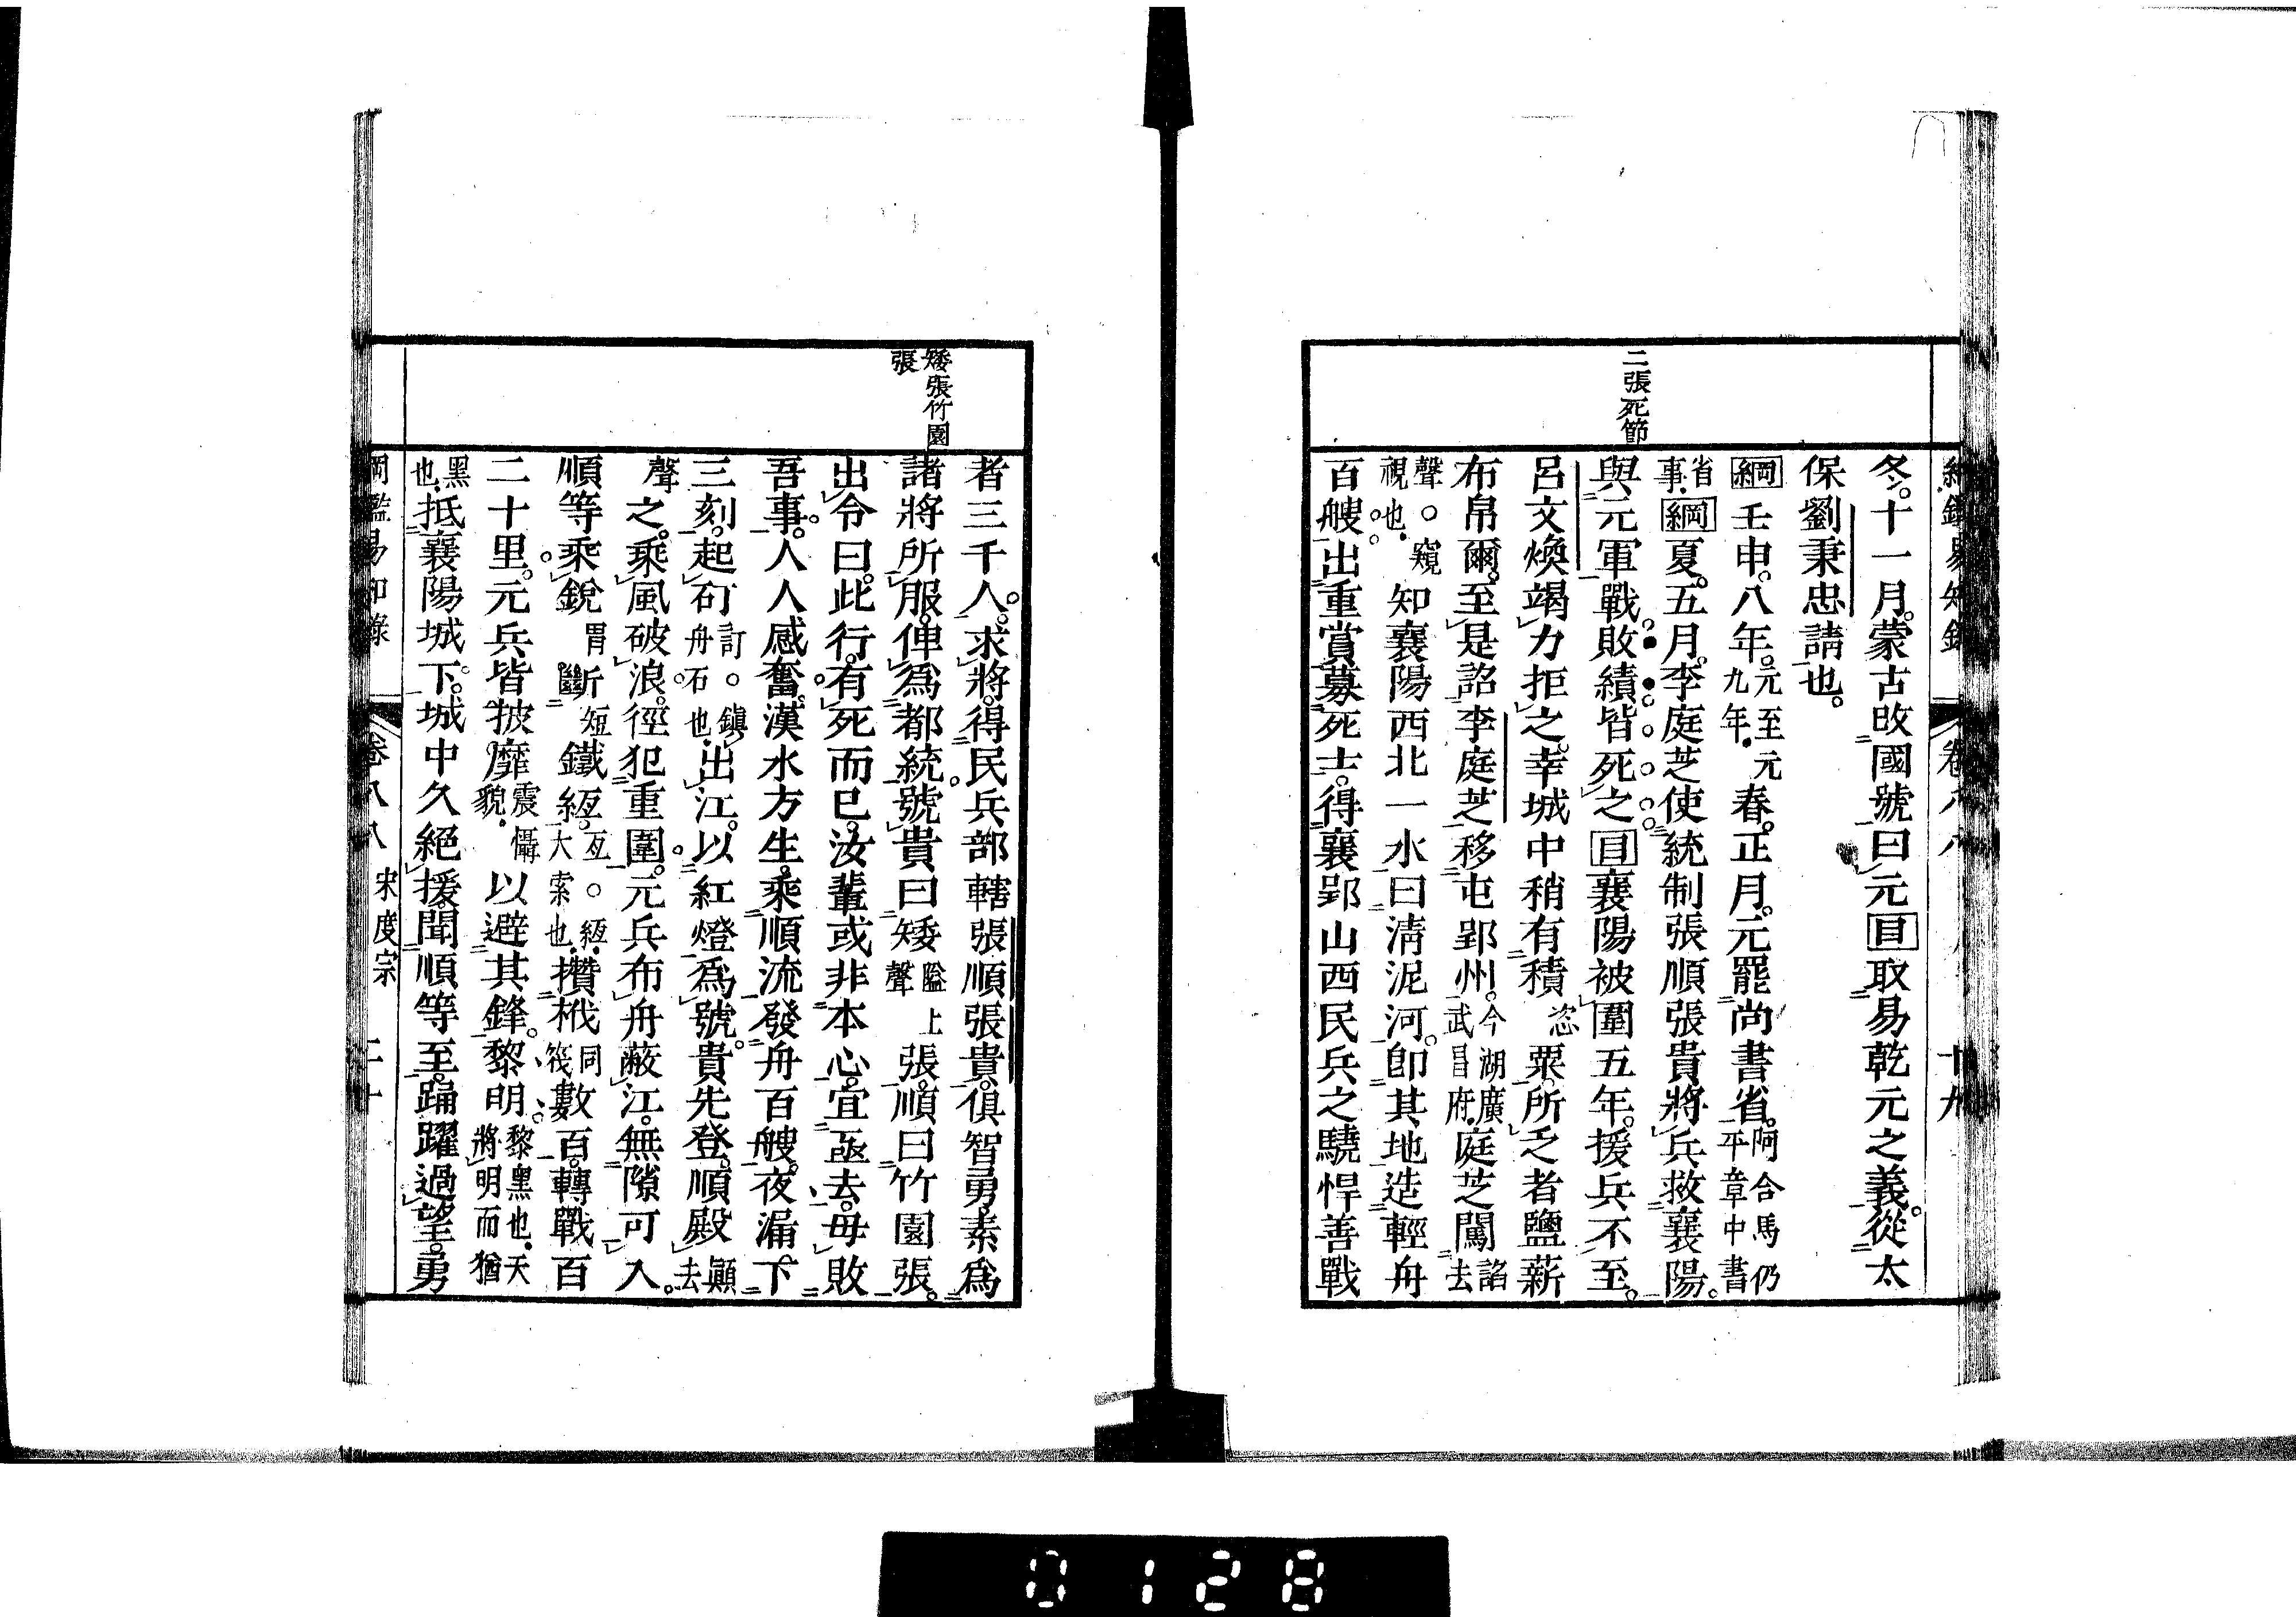 綱鑑易知錄 卷八八 十九
二張死節
冬。十一月。蒙古攺國號曰元目取易乾元之義。從太
保劉秉忠請也。
綱壬申。八年。元至元九年。春。正月。元罷尚書省。阿合馬仍平章中書
省事。綱夏。五月。李庭芝使統制張順張貴將兵救襄陽。
與元軍戰敗績皆死之目襄陽被圍五年。援兵不至。
呂文煥竭力拒之。幸城中稍有積恣粟。所乏者鹽薪
布帛爾。至是詔李庭芝移屯郢州。今湖廣武昌府。庭芝闖諂去
聲。窺視也。知襄陽西北一水曰淸泥河。卽其地造輕舟
百艘。出重賞募死士。得襄郢山西民兵之驍悍善戰
矮張竹園張
者三千人。求將。得民兵部轄張順張貴。俱智勇。素爲
諸將所服。俾爲都統。號貴曰矮隘上聲張。順曰竹園張。
出令曰。此行。有死而已。汝輩或非本心。宜亟去。毋敗
吾事。人人感奮。漢水方生。乘順流發舟百艘。夜漏下
三刻。起矴訂。鎭舟石也。出江。以紅燈爲號。貴先登。順殿顚去
聲之。乘風破浪。徑犯重圍。元兵布舟蔽江。無隙可入。
順等乘銳冐斫斷短鐵絙亙。絙大索也。攢栰同筏數百。轉戰百
二十里。元兵皆披靡震懾貌。以避其鋒。黎明。黎黑也。天將明而猶
黑也。抵襄陽城下。城中久絕援。聞順等至。踊躍過望。勇
綱鑑易知錄 卷八八 宋度宗 二十
0128